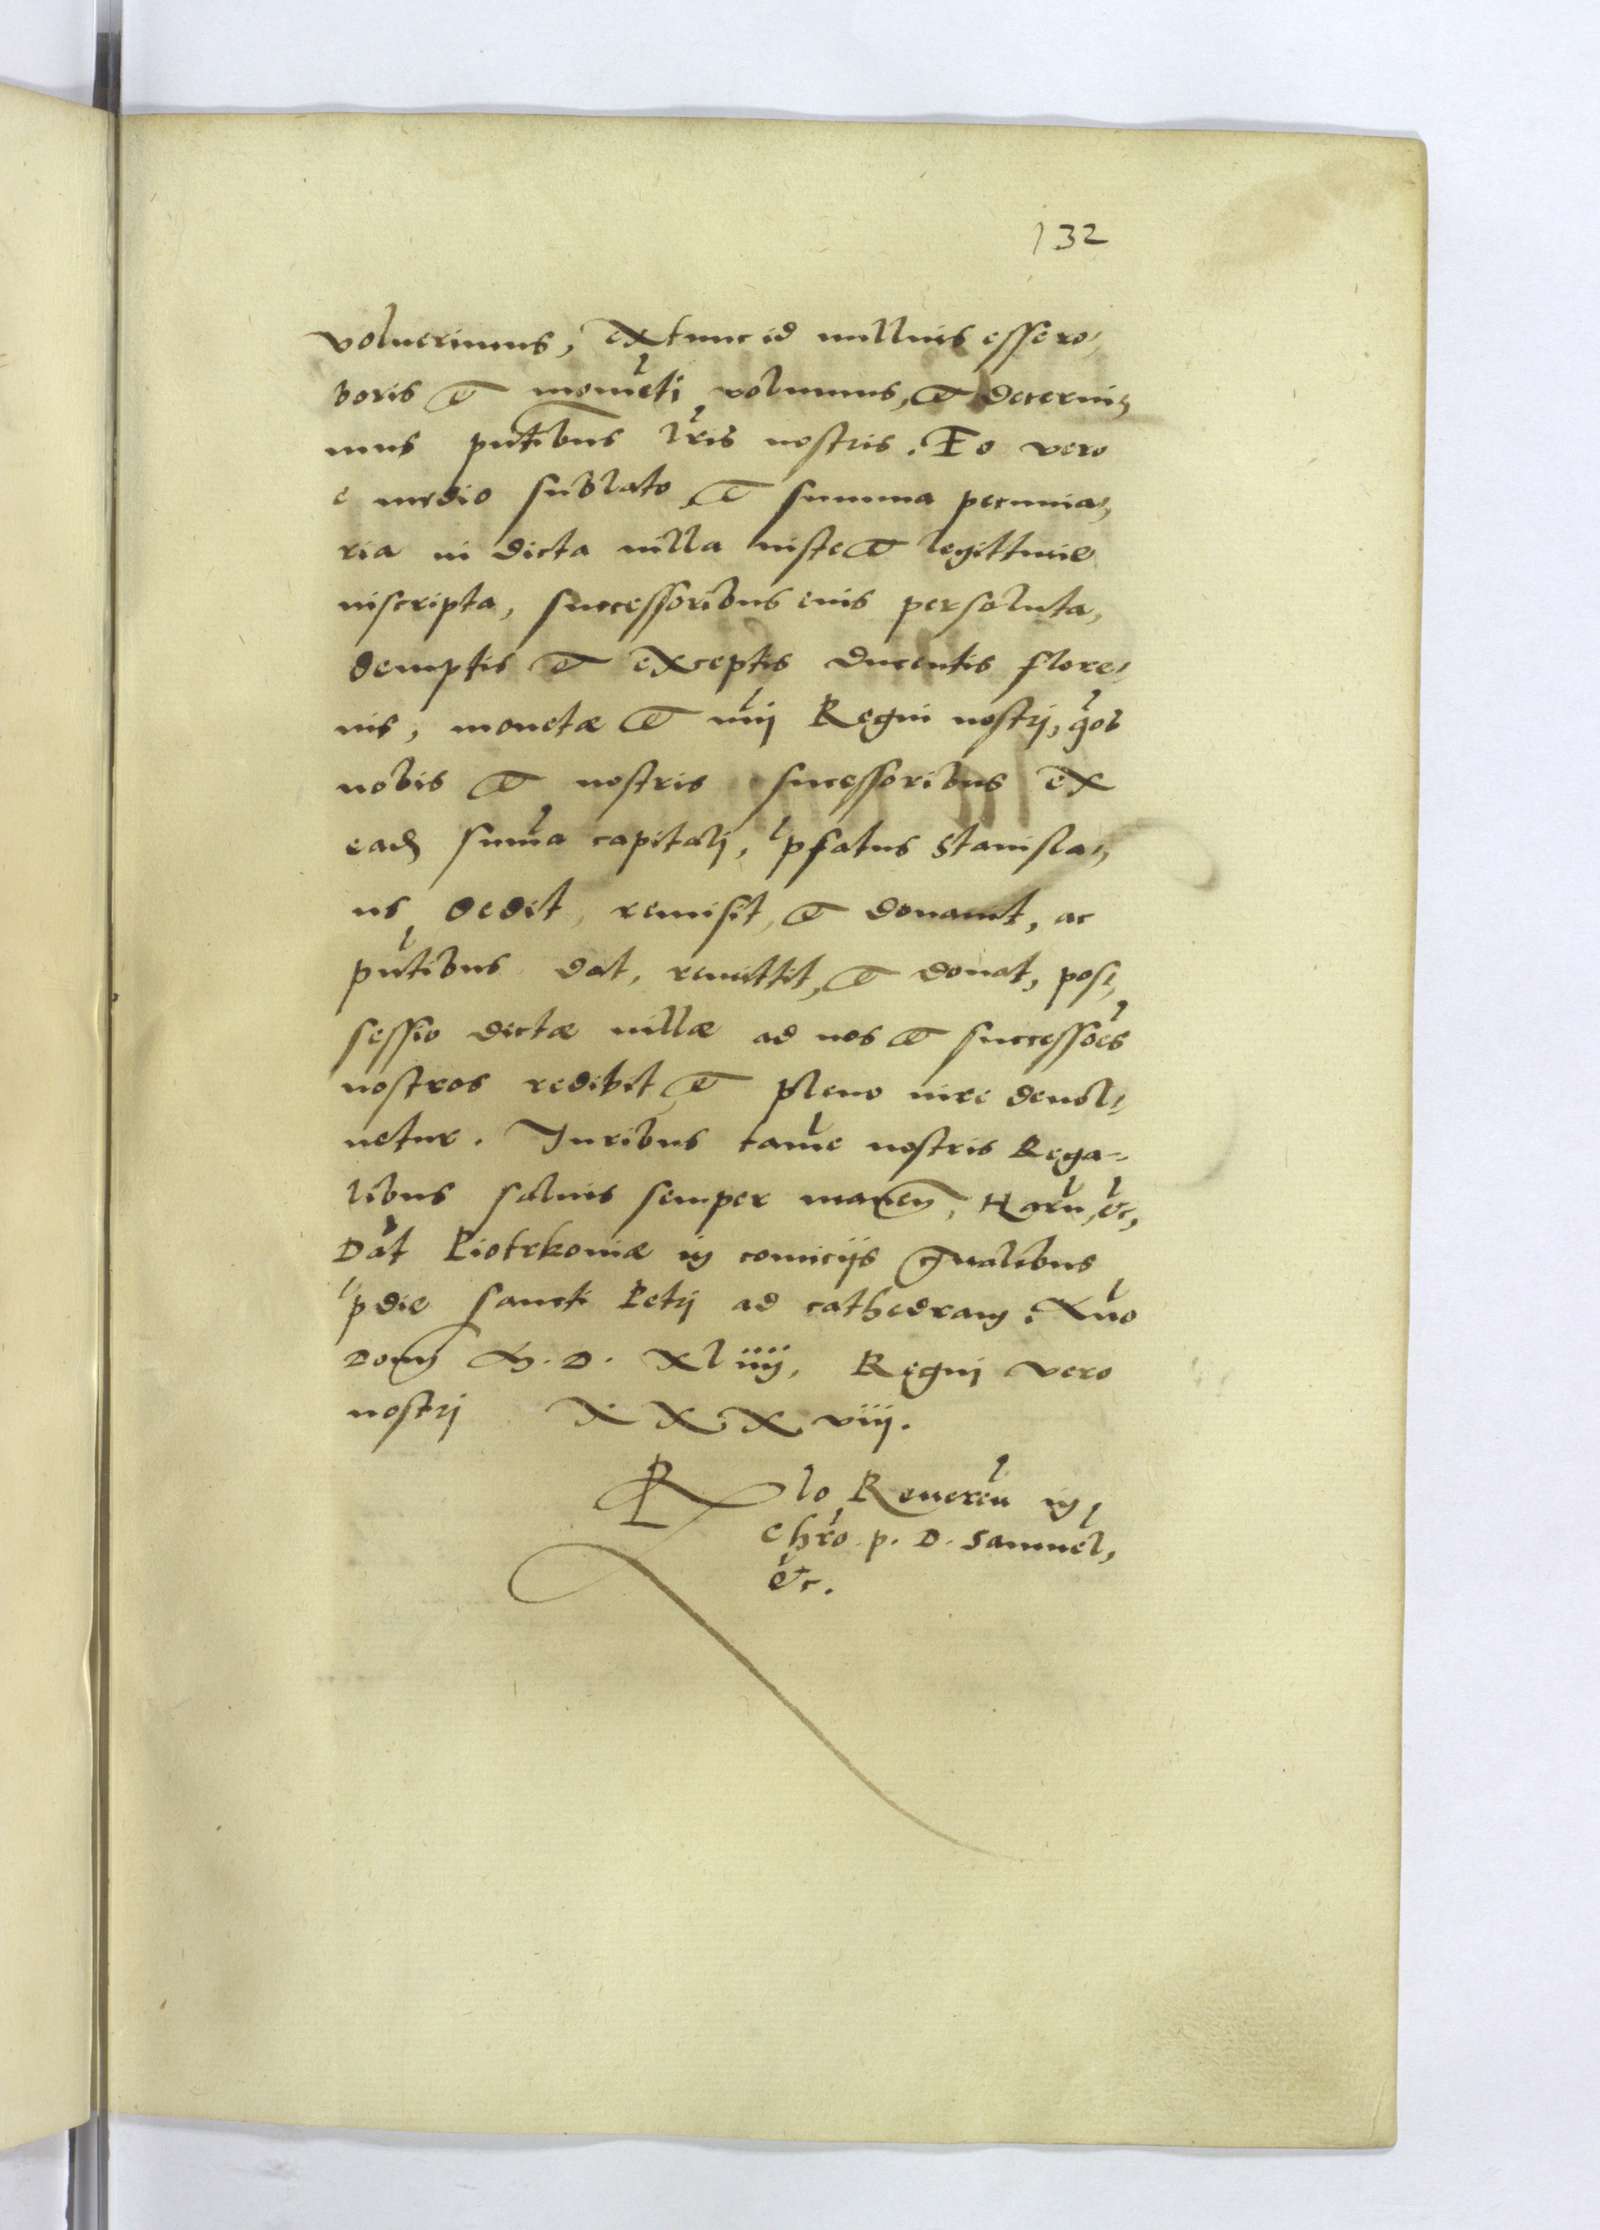 132
voluerimus, extunc id nullius esse ro„
boris et mome͂ti volumus, et decerni„
mus pn̄tibus lr̄is nostris. Eo vero
e medio sublato et summa pecunia„
ria in dicta uilla iuste et legittime
inscripta, successoribus eius persoluta,
demptis et exceptis ducentis flore„
nis, monetæ et nūi Regni nostrj, q̄s
nobis et nostris sucessoribus ex
ead. sum̄a capitalj, p̄fatus Stanisla„
us, dedit, remisit, et donauit, ac
pn̄tibus dat, remittit, et donat, pos„
sessio dictæ uillæ ad nos et successōes
nostros redibit et pleno iure deuol„
uetur. Juribus tam̄e nostris Rega„
libus saluis semper manen. Harū, &c,
Dāt Piotrkouiæ in comicijs gn̄alibus
p̄die sancti Petrj ad cathedram. An̄o
Domj M. D. xliiij, Regnj vero
nostrj X X X viij.
Rlo Reueren̄ in
Chr̄o. p. D. Samuel,
&c.